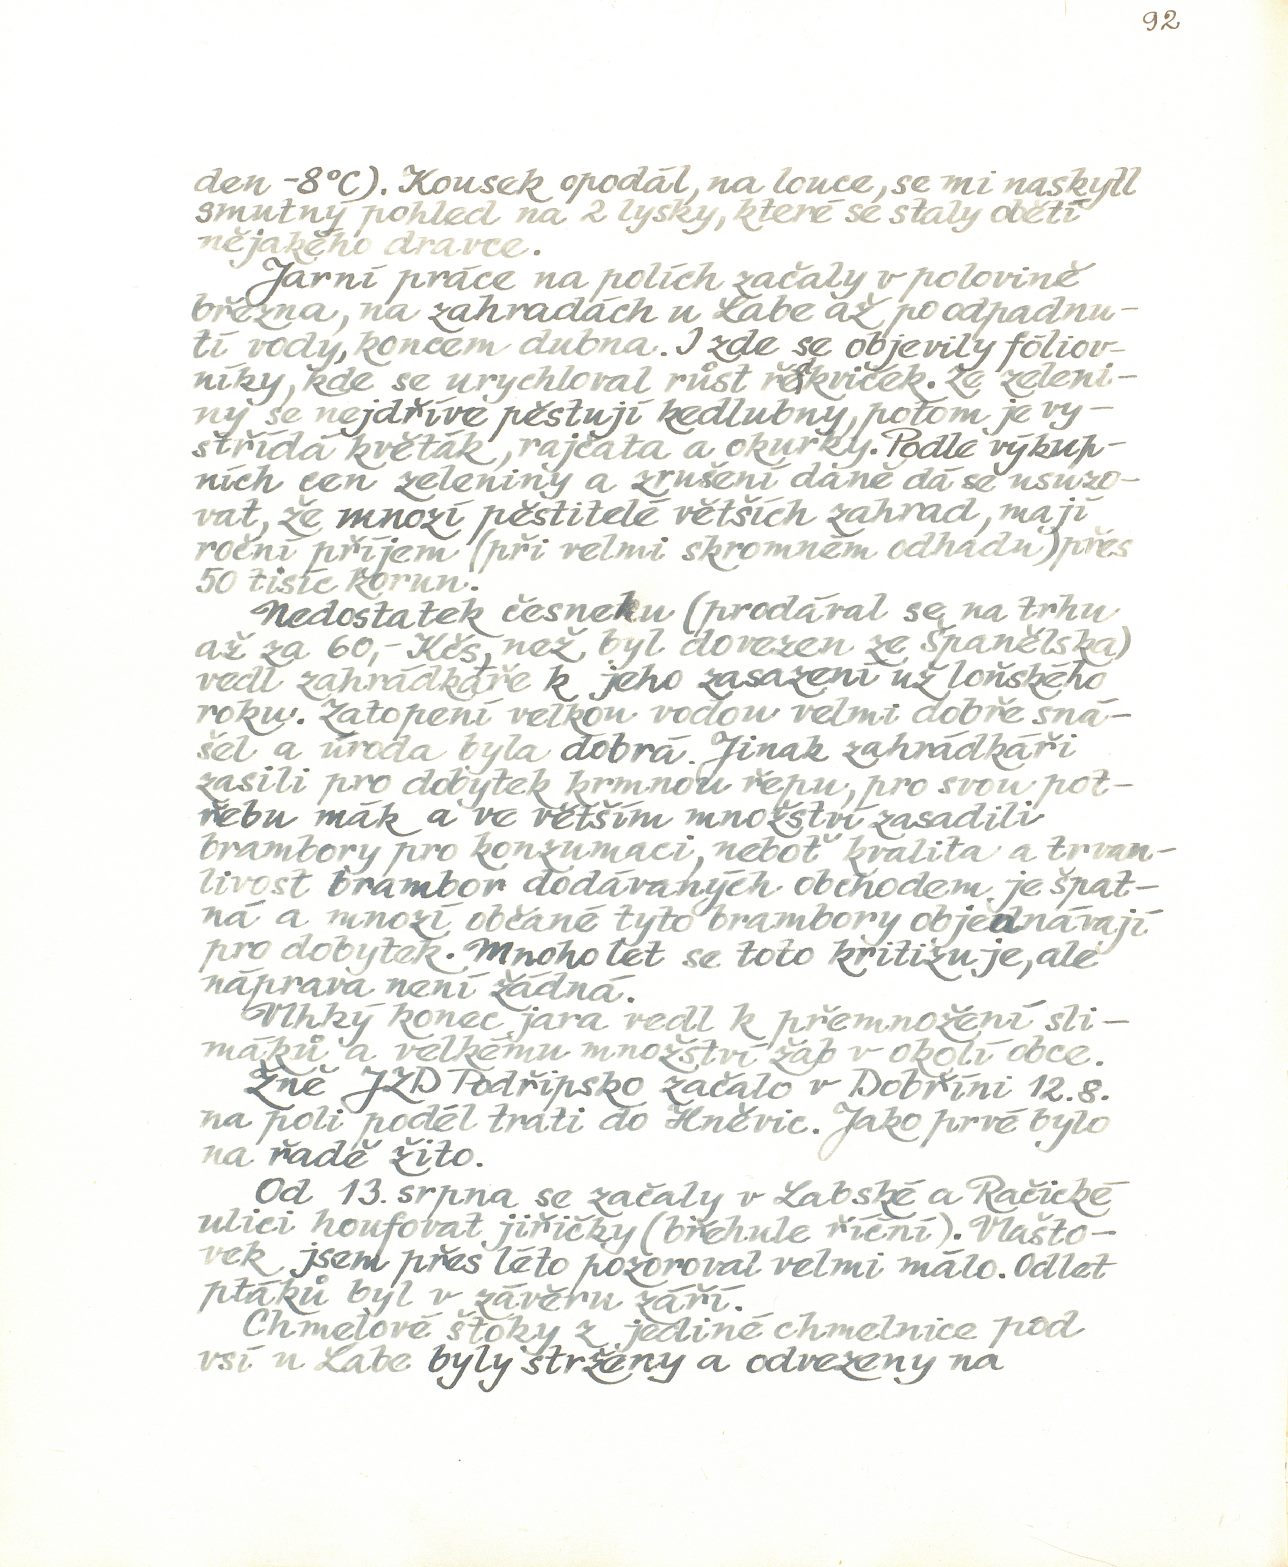 92
den -8°C). Kousek opodál, na louce, se mi naskytl
smutný pohled na 2 lysky, které se staly obětí
nějakého dravce.
Jarní práce na polích začaly v polovině
března, na zahradách u Labe až po odpadnu-
tí vody, koncem dubna. I zde se objevily fóliov-
níky, kde se urychloval růst ředkviček. Ze zeleni-
ny se nejdříve pěstují kedlubny, potom je vy-
střídá květák, rajčata a okurky. Podle výkup-
ních cen zeleniny a zrušení daně dá se usuzo-
vat, že mnozí pěstitelé větších zahrad, mají
roční příjem (při velmi skromném odhadu) přes
50 tisíc korun.
Nedostatek česneku (prodával se na trhu
až za 60,- Kčs, než byl dovezen ze Španělska)
vedl zahrádkáře k jeho zasazení už loňského
roku. Zatopení velkou vodou velmi dobře sná-
šel a úroda byla dobrá. Jinak zahrádkáři
zasili pro dobytek krmnou řepu, pro svou pot-
řebu mák a ve větším množství zasadili
brambory pro konzumaci, neboť kvalita a trvan-
livost brambor dodávaných obchodem je špat-
ná a mnozí občané tyto brambory objednávají
pro dobytek. Mnoho let se toto kritizuje, ale
náprava není žádná.
Vlhký konec jara vedl k přemnožení sli-
máků a velkému množství žab v okolí obce.
Žně JZD Podřipsko začalo v Dobříni 12. 8.
na poli podél trati do Hněvic. Jako prvé bylo
na řadě žito.
Od 13. srpna se začaly v Labské a Račické
ulici houfovat jiřičky (břehule říční). Vlašto-
vek jsem přes léto pozoroval velmi málo. Odlet
ptáků byl v závěru září.
Chmelové štoky z jediné chmelnice pod
vsí u Labe byly strženy a odvezeny na